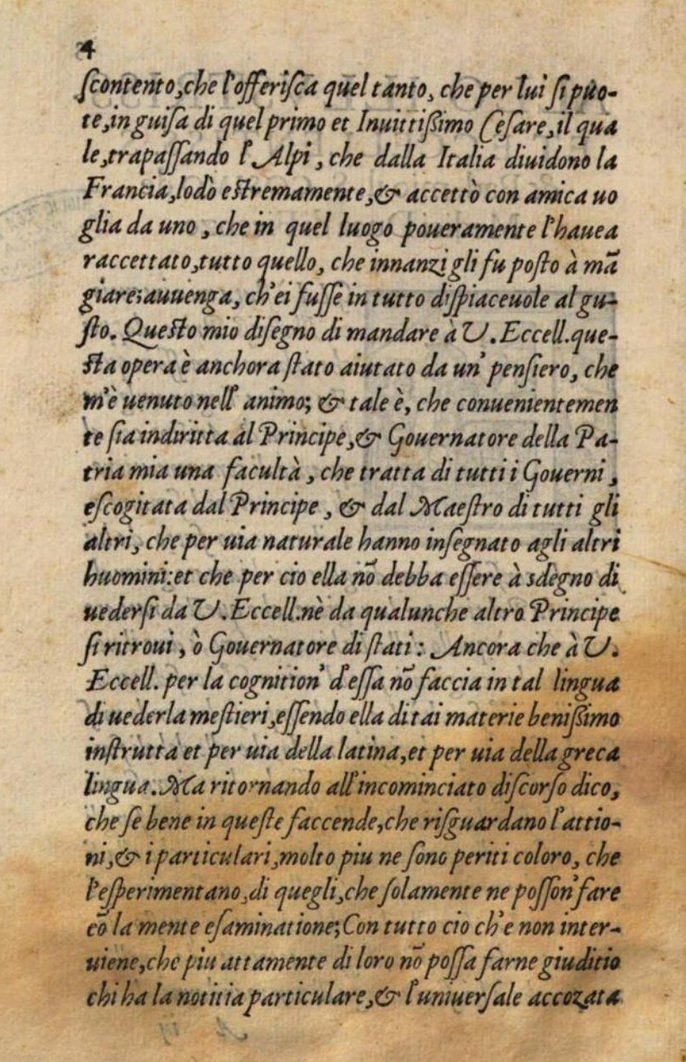 4
ſcontento, che l'offeriſca quel tanto, che per lui ſi puo-
te, in guiſa di quel primo et Inuittißimo Ceſare, il qua
le, trapaſſando l'Alpi, che dalla Italia diuidono la
Francia, lodò eſtremamente, & accettò con amica uo
glia da uno, che in quel luogo poueramente l'hauea
raccettato, tutto quello, che innanzi gli fu poſto à mā
giare: auuenga, ch'ei fuſſe in tutto diſpiaceuole al gu-
ſto. Queſto mio diſegno di mandare à V. Eccell. que-
ſta opera è anchora ſtato aiutato da un' penſiero, che
m'è uenuto nell' animo; & tale è, che conuenientemen
te ſia indiritta al Principe, & Gouernatore della Pa-
tria mia una facultà, che tratta di tutti i Gouerni,
eſcogitata dal Principe, & dal Maeſtro di tutti gli
altri, che per uia naturale hanno inſegnato agli altri
huomini: et che per cio ella nō debba eſſere à sdegno di
uederſi da V. Eccell. nè da qualunche altro Principe
ſi ritroui, ò Gouernatore di ſtati: Ancora che à V.
Eccell. per la cognition' d'eſſa nō faccia in tal lingua
di uederla meſtieri, eſſendo ella di tai materie benißimo
inſtrutta et per uia della latina, et per uia della greca
lingua. Ma ritornando all'incominciato diſcorſo dico,
che ſe bene in queſte faccende, che riſguardano l'attio-
ni, & i particulari, molto piu ne ſono periti coloro, che
l'eſperimentano, di quegli, che ſolamente ne poſſon' fare
cō la mente eſaminatione; Con tutto cio ch'e non inter-
uiene, che piu attamente di loro nō poſſa farne giuditio
chi ha la notitia particulare, & l'uniuerſale accozata